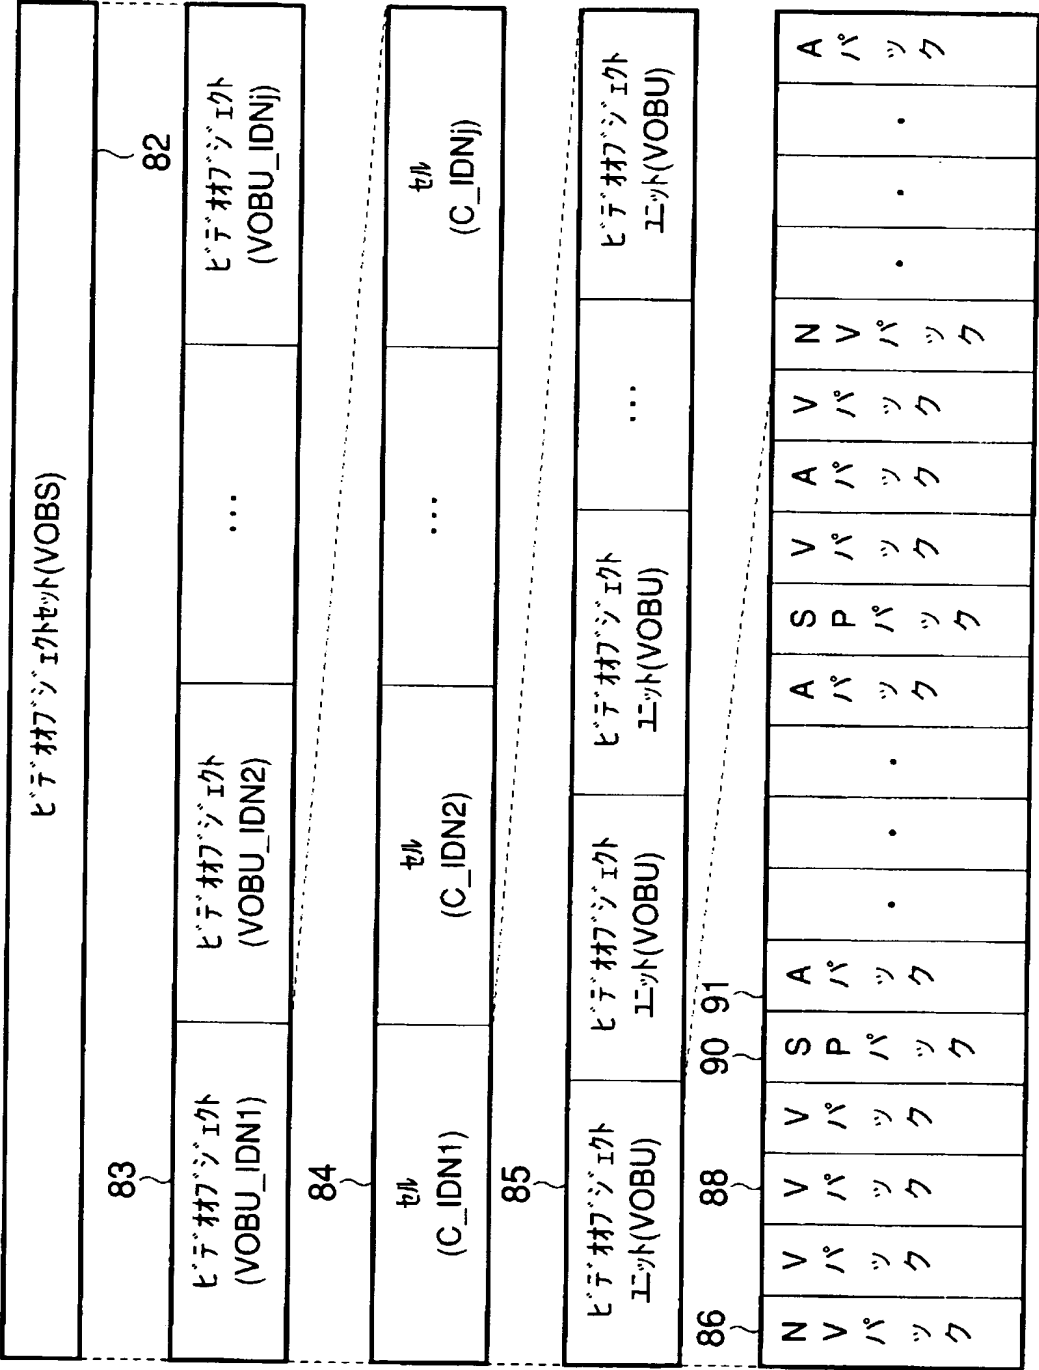 ビデオオブジェクトセット(VOBS)
82
83
ビデオオブジェクト
(VOBU_IDN1)
ビデオオブジェクト
(VOBU_IDN2)
...
ビデオオブジェクト
(VOBU_IDNj)
84
セル
(C_IDN1)
セル
(C_IDN2)
...
セル
(C_IDNj)
85
ビデオオブジェクト
ユニット(VOBU)
ビデオオブジェクト
ユニット(VOBU)
ビデオオブジェクト
ユニット(VOBU)
...
ビデオオブジェクト
ユニット(VOBU)
86
88
90
91
NVパック
Vパック
Vパック
Vパック
SPパック
Aパック
・
・
・
Aパック
SPパック
Vパック
Aパック
Vパック
NVパック
・
・
・
Aパック